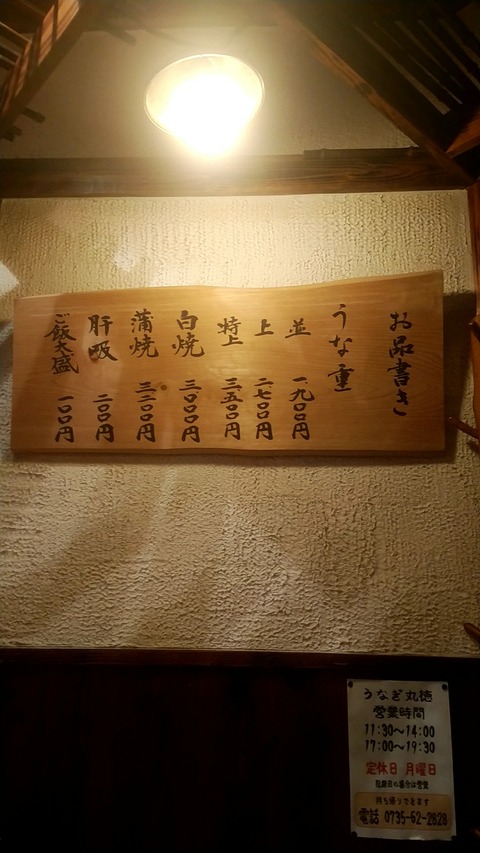 お品書き
うな重
並 一、九〇〇円
上 二、七〇〇円
特上 三、五〇〇円
白焼 三、〇〇〇円
蒲焼 三、二〇〇円
肝吸 二〇〇円
ご飯大盛 一〇〇円
うなぎ丸徳
営業時間
11:30〜14:00
17:00〜19:30
定休日 月曜日
祝祭日の場合は営業
持ち帰りできます
電話 0735-62-2828